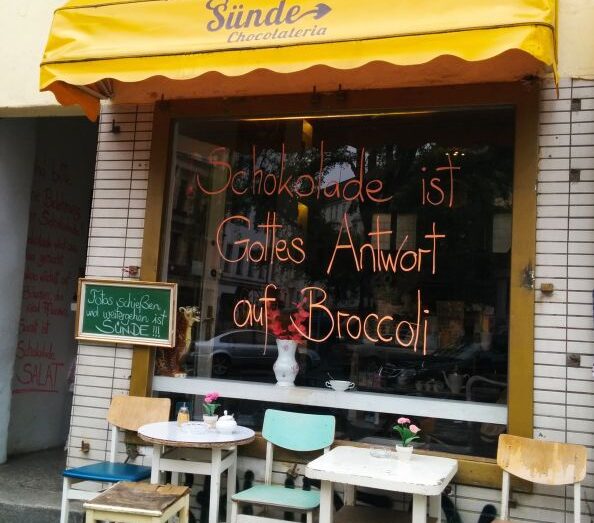 Sünde
Chocolateria
Schokolade ist
Gottes Antwort
auf Broccoli
Fotos schießen
und weitergehen ist
SÜNDE !!!
Schokolade
SALAT